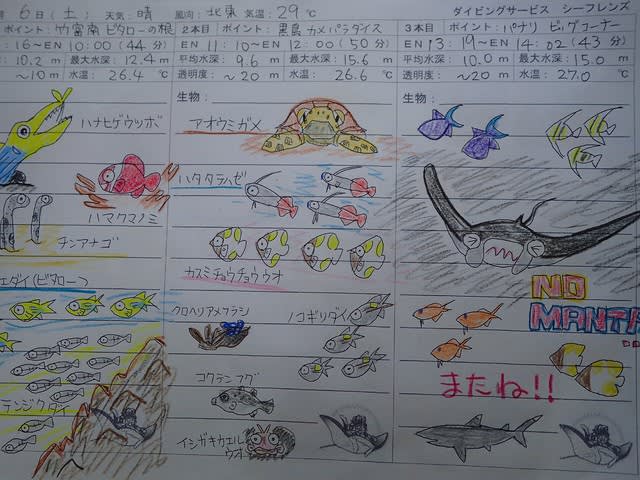 6日(土) 天気:晴 風向:北東 気温:29℃ ダイビングサービス シーフレンズ
ポイント:竹富南 ビタローの根
:16~EN 10:00(44分)
10.2m 最大水深:12.4m
~10m 水温:26.4℃
ハナヒゲウツボ
ハマクマノミ
チンアナゴ
エダイ(ビタロー)
テンジクダイ
2本目 ポイント:黒島 カメパラダイス
EN 11:10~EN 12:00(50分)
平均水深:9.6m 最大水深:15.6m
透明度:~20m 水温:26.6℃
生物:
アオウミガメ
ハタタテハゼ
カスミチョウチョウウオ
クロヘリアメフラシ
ノコギリダイ
コクテンフグ
イシガキカエル
ウオ
3本目 ポイント:パナリ ビッグコーナー
EN 13:19~EN 14:02(43分)
平均水深:10.0m 最大水深:15.0m
透明度:~20m 水温:27.0℃
生物:
NO
MANTA
またね!!